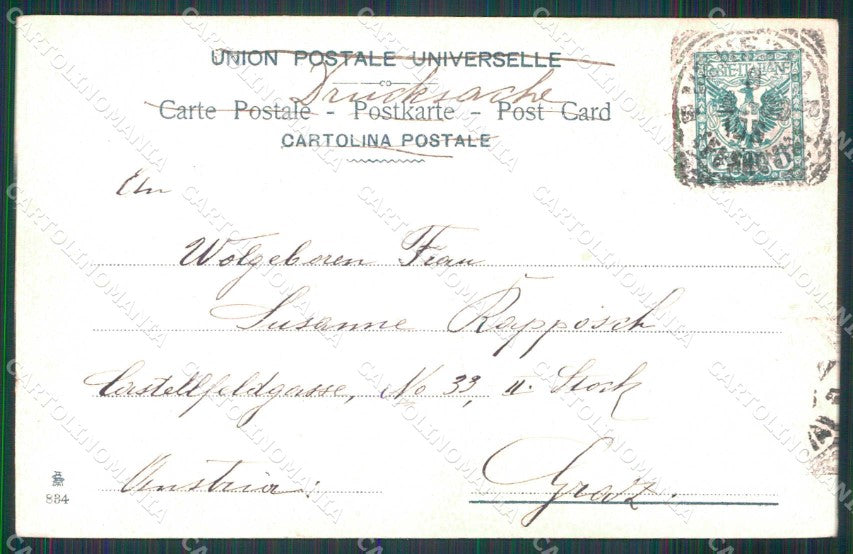 UNION POSTALE UNIVERSELLE
Drucksache
Carte Postale - Postkarte - Post Card
CARTOLINA POSTALE
POSTE ITALIANE
An
Wolgeboren Frau
Susanne Rapposch
Castellfeldgasse, No 33, II. Stock
Austria:
Graz.
884
CARTOLINOMANIA